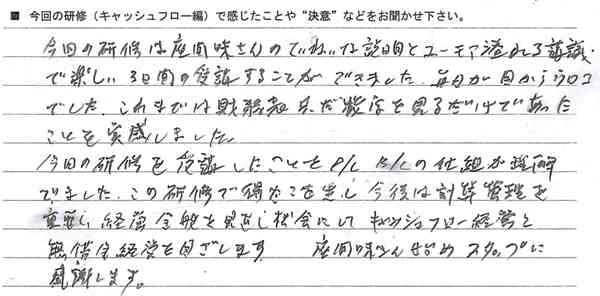 ■ 今回の研修（キャッシュフロー編）で感じたことや“決意”などをお聞かせ下さい。
今回の研修は座間味さんのていねいな説明とユーモア溢れる講議
で楽しい3日間の受講することができました。毎日が目からウロコ
でした。これまでは財務表 数字を見るだけであった
ことを実感しました。
今回の研修を受講したことで P/L B/Lの仕組が理解
できました。この研修で得たことを生し 今後は計算管理を
重要し 経営全般を見直し機会にして キャッシュフロー経営と
無借金経営を目ざします 座間味さんはじめ スタッフに
感謝します。